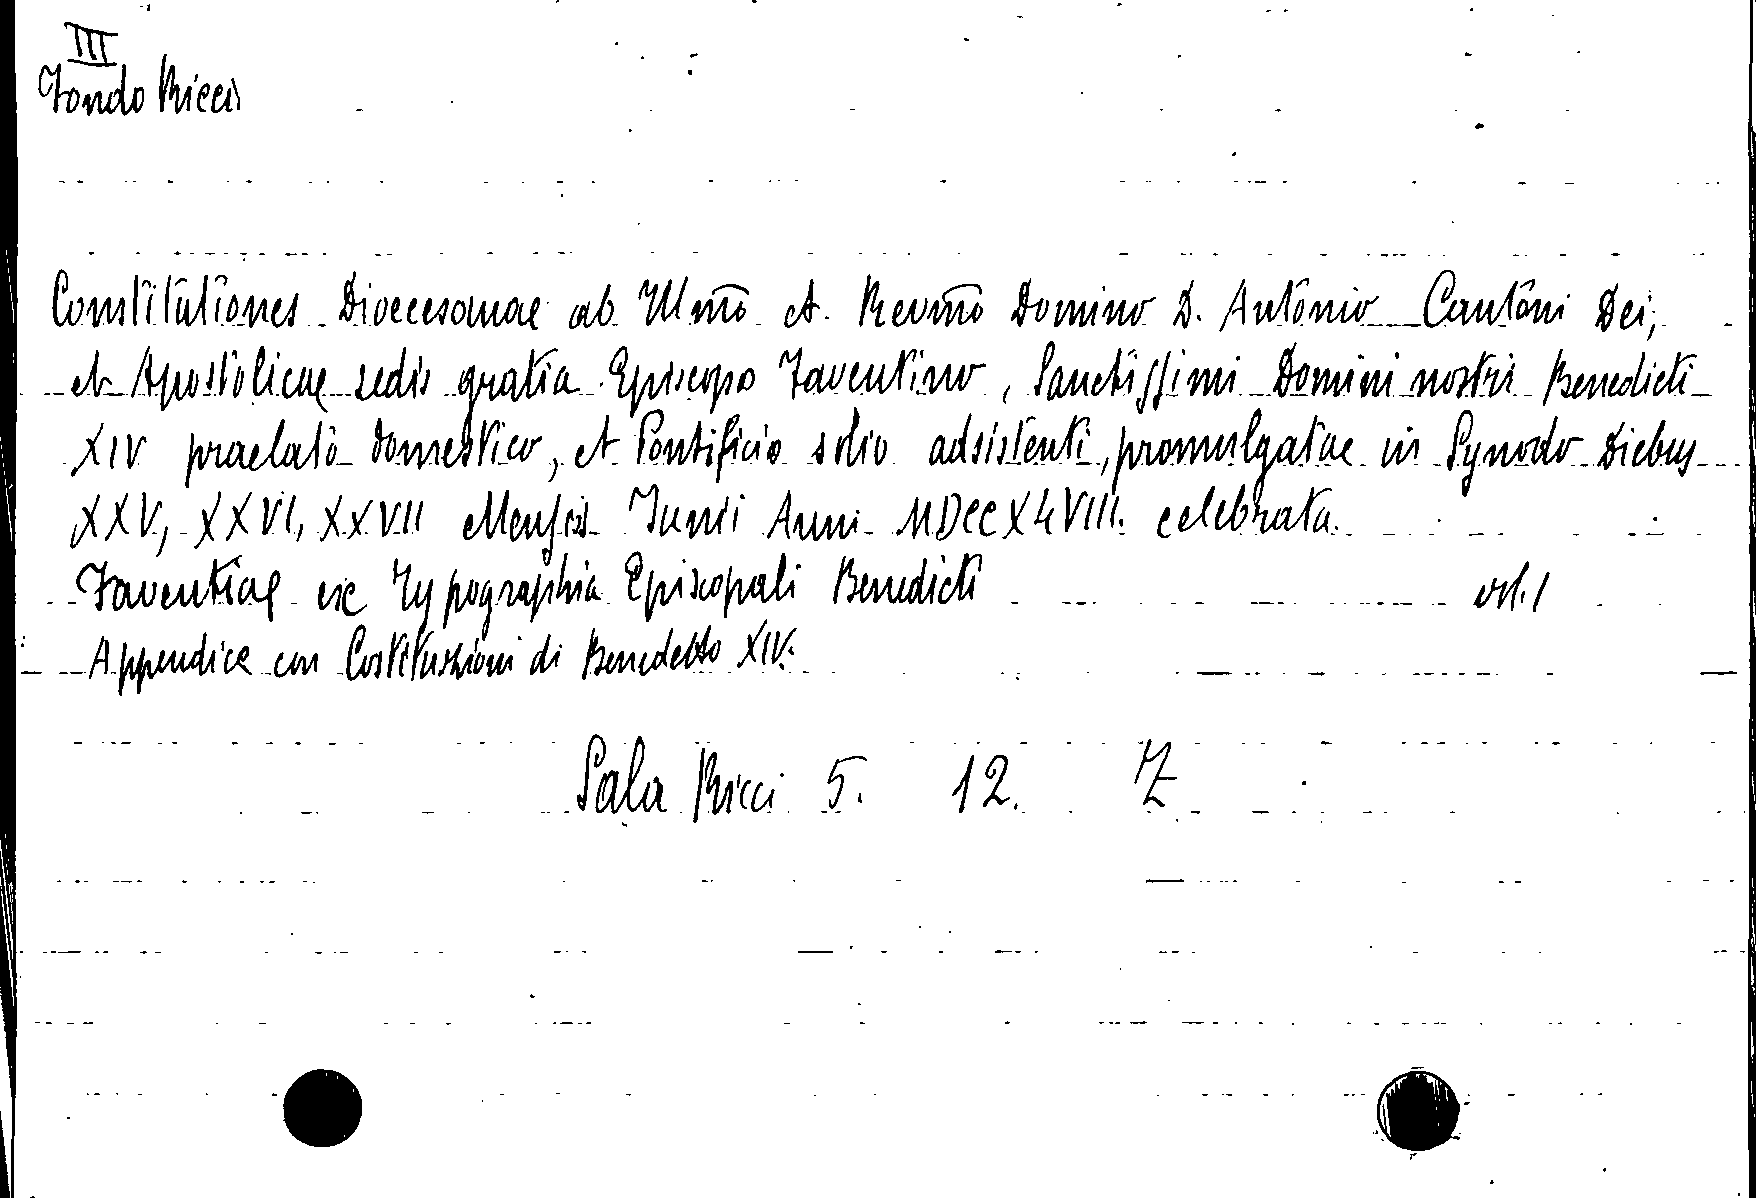 III
Fondo Ricci
Constitutiones Dioecesanae ab Illmo et Revmo Domino D. Antonio Cantoni Dei,
et Apostolicae sedis gratia Episcopo Faventino, Sanctissimi Domini nostri Benedicti
XIV praelato domestico, et Pontificio solio adsistenti, promulgatae in Synodo Diebus
XXV, XXVI, XXVII Mensis Junii Anni MDCCXLVIII. celebrata.
Faventiae ex Typographia Episcopali Benedicti vol. 1
Appendice con Costituzioni di Benedetto XIV.
Sala Ricci 5. 12.